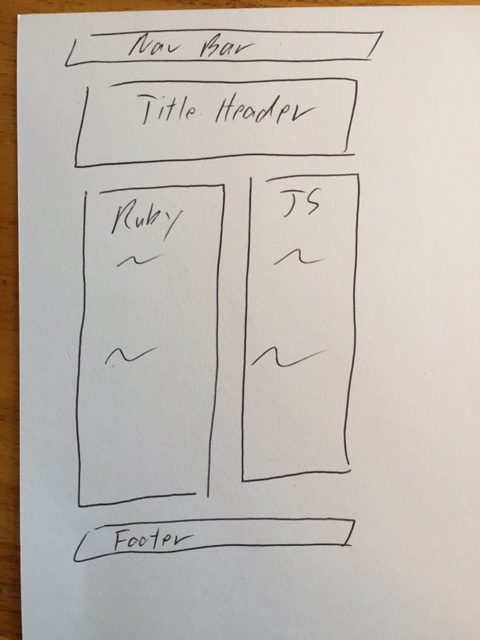 Nav Bar
Title Header
Ruby
JS
Footer